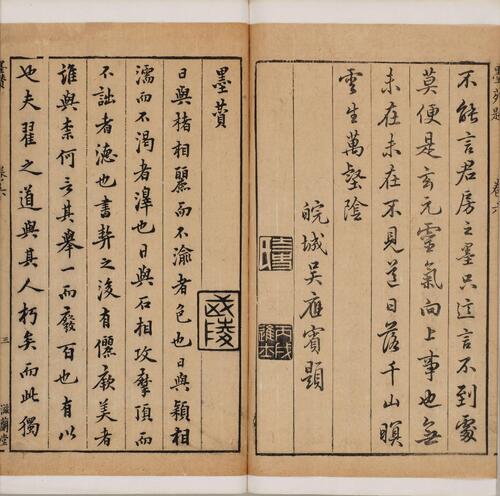 墨苑題 卷六
不能言君房之墨只這言不到處
莫便是玄元靈氣向上事也無
未在未在不見道日落千山暝
雲生萬壑陰
皖城吳應賓題
丙戌進士
墨贊
日與楮相麗而不渝者色也日與穎相
濡而不渴者澤也日與石相攻摩頂而
不詘者德也書契之後有儷厥美者
誰與柰何言其舉一而廢百也有以
也夫翟之道與其人朽矣而此獨
三 滋蘭堂